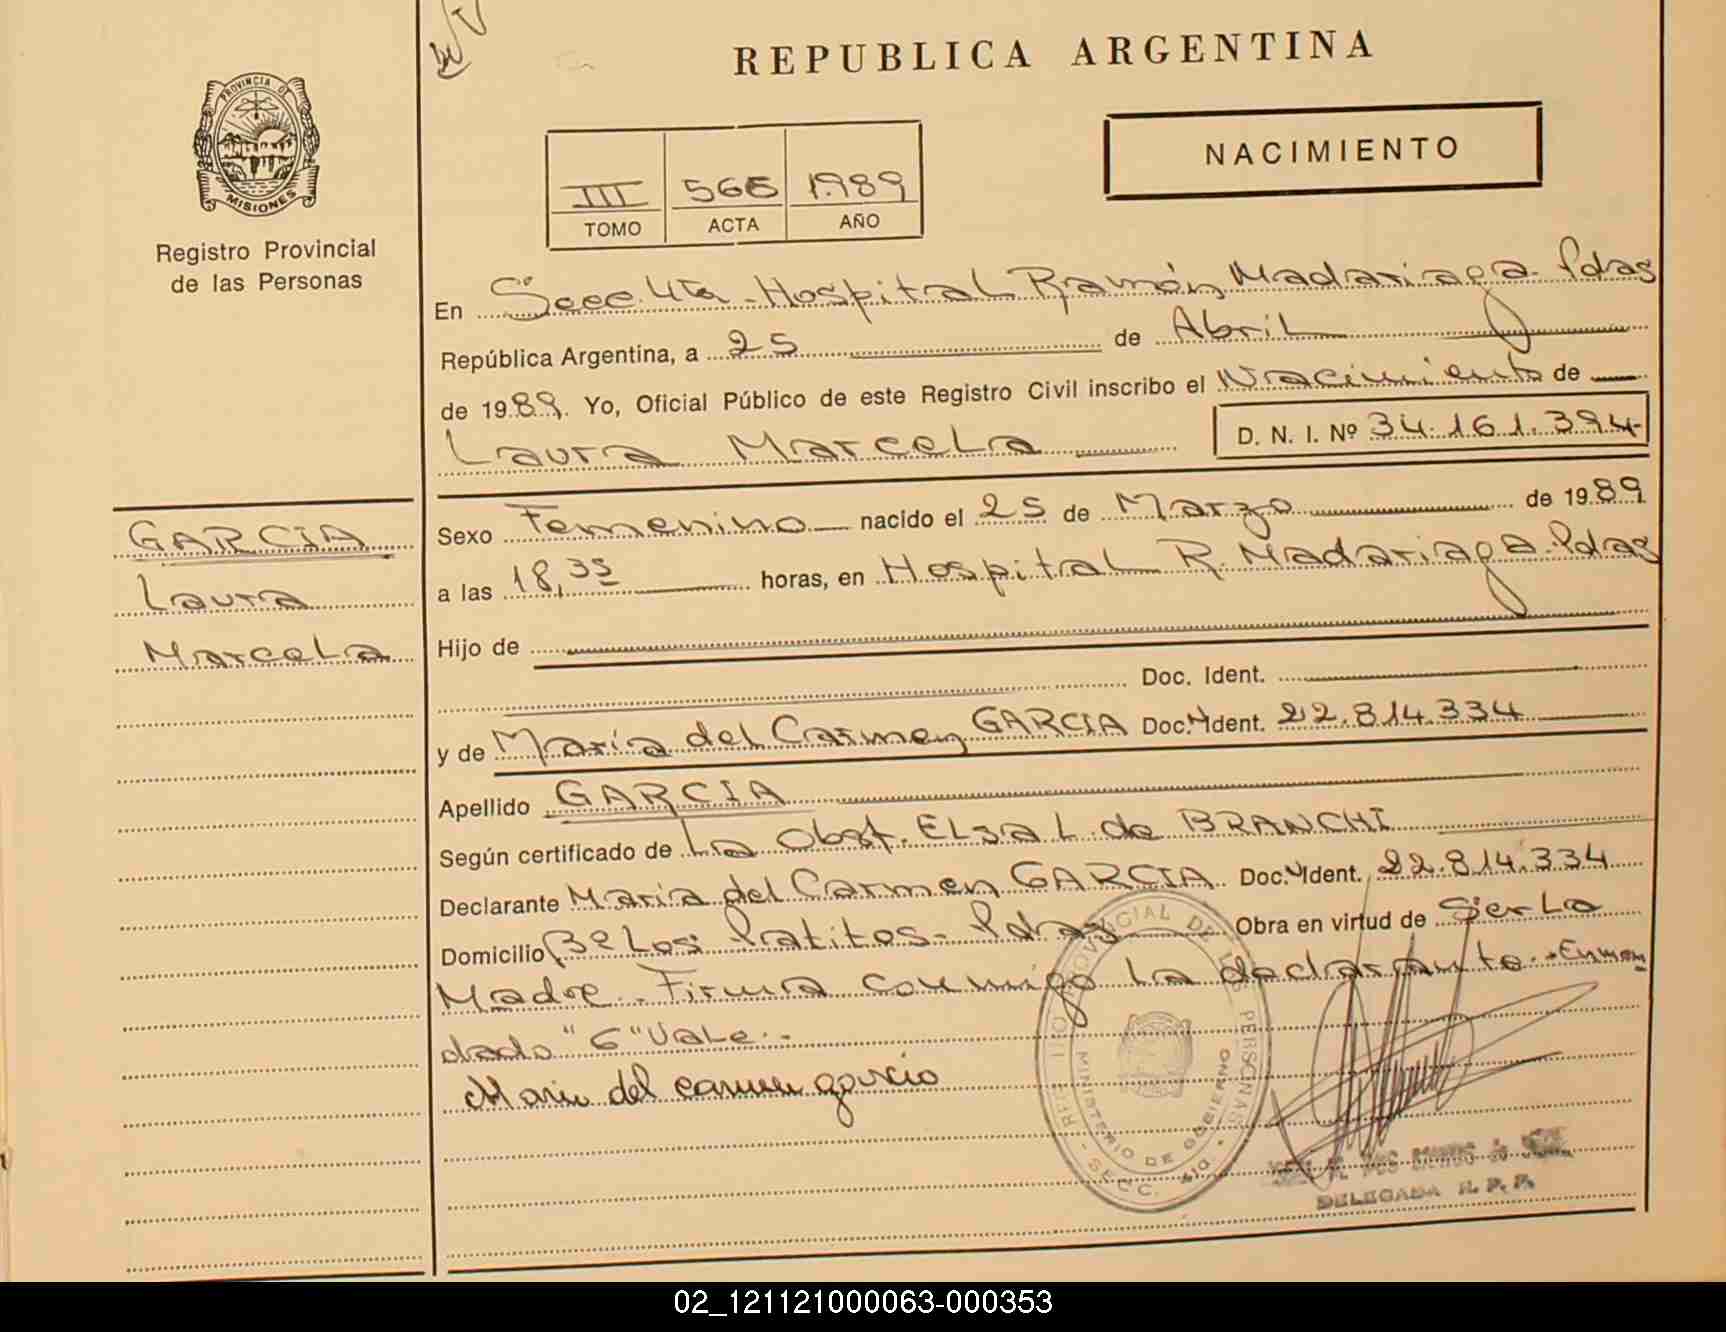 REPUBLICA ARGENTINA
NACIMIENTO
PROVINCIA DE
MISIONES
Registro Provincial
de las Personas
III 566 1989
TOMO ACTA AÑO
En Secc. 4ta - Hospital Ramón Madariaga - Pdas
República Argentina, a 25 de Abril
de 1989. Yo, Oficial Público de este Registro Civil inscribo el Nacimiento de
Laura Marcela D. N. I. Nº 34.161.394-
GARCIA
Laura
Marcela
Sexo Femenino nacido el 25 de Marzo de 1989
a las 18,35 horas, en Hospital R. Madariaga - Pdas
Hijo de
Doc. Ident.
y de María del Carmen GARCIA Doc. Ident. 22.814.334
Apellido GARCIA
Según certificado de La Obst. Elsa L. de BRANCHI
Declarante María del Carmen GARCIA Doc. Ident. 22.814.334
Domicilio Bº Los Patitos - Pdas Obra en virtud de Ser La
Madre - Firma conmigo la declarante - Enmen
dado "6" Vale -
Maria del carmen garcia
PROVINCIAL DE LAS PERSONAS
MINISTERIO DE GOBIERNO
SECC.
DELEGADA R. P. P.
02_121121000063-000353